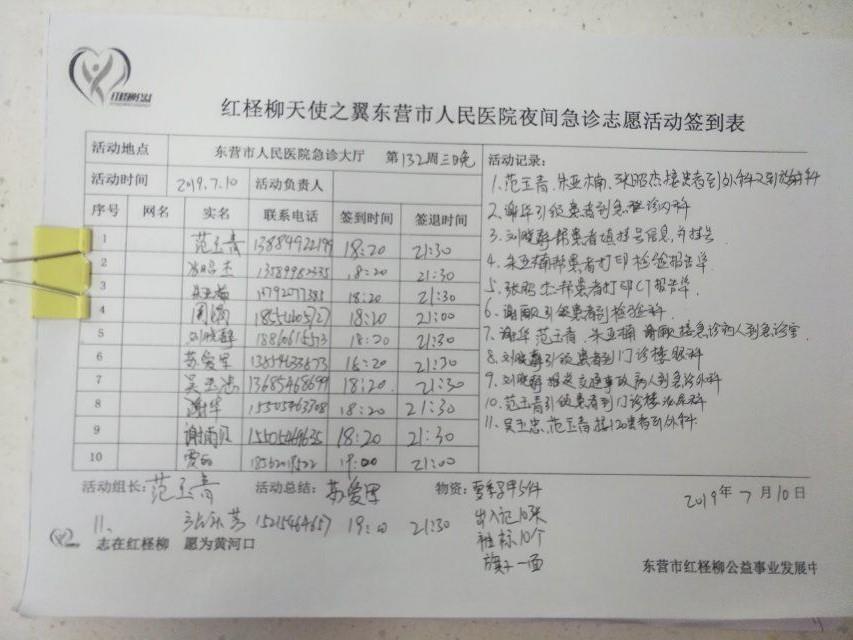 红柽柳天使之翼东营市人民医院夜间急诊志愿活动签到表
活动地点 东营市人民医院急诊大厅 第132周三晚
活动时间 2019.7.10 活动负责人
序号 网名 实名 联系电话 签到时间 签退时间
1 范玉青 18:20 21:30
2 张昭杰 18:20 21:30
3 朱亚楠 18:20 21:30
4 18:20 21:00
5 刘晓静 18:20 21:30
6 苏爱军 18:20 21:30
7 吴玉忠 13685468699 18:20 21:30
8 谢华 18:20 21:30
9 18:20 21:30
10 19:00 21:00
活动记录:
1.范玉青、朱亚楠、张昭杰接患者到外科又到放射科
2.谢华引领患者到急诊内科
3.刘晓静帮患者填挂号信息,并挂号
4.朱亚楠帮患者打印检验报告单
5.张昭杰帮患者打印CT报告单
6.引领患者到检验科
7.谢华 范玉青、朱亚楠 接急诊病人到急诊室
8.刘晓静引领患者到门诊楼眼科
9.刘晓静推送交通事故病人到急诊外科
10.范玉青引领患者到门诊楼泌尿科
11.吴玉忠、范玉青接120患者到外科
活动组长:范玉青 活动总结:苏爱军 物资:夏季马甲5件
2019年7月10日
11、 15215464657 19:00 21:30
出入记10张
袖标10个
旗子一面
志在红柽柳 愿为黄河口
东营市红柽柳公益事业发展中